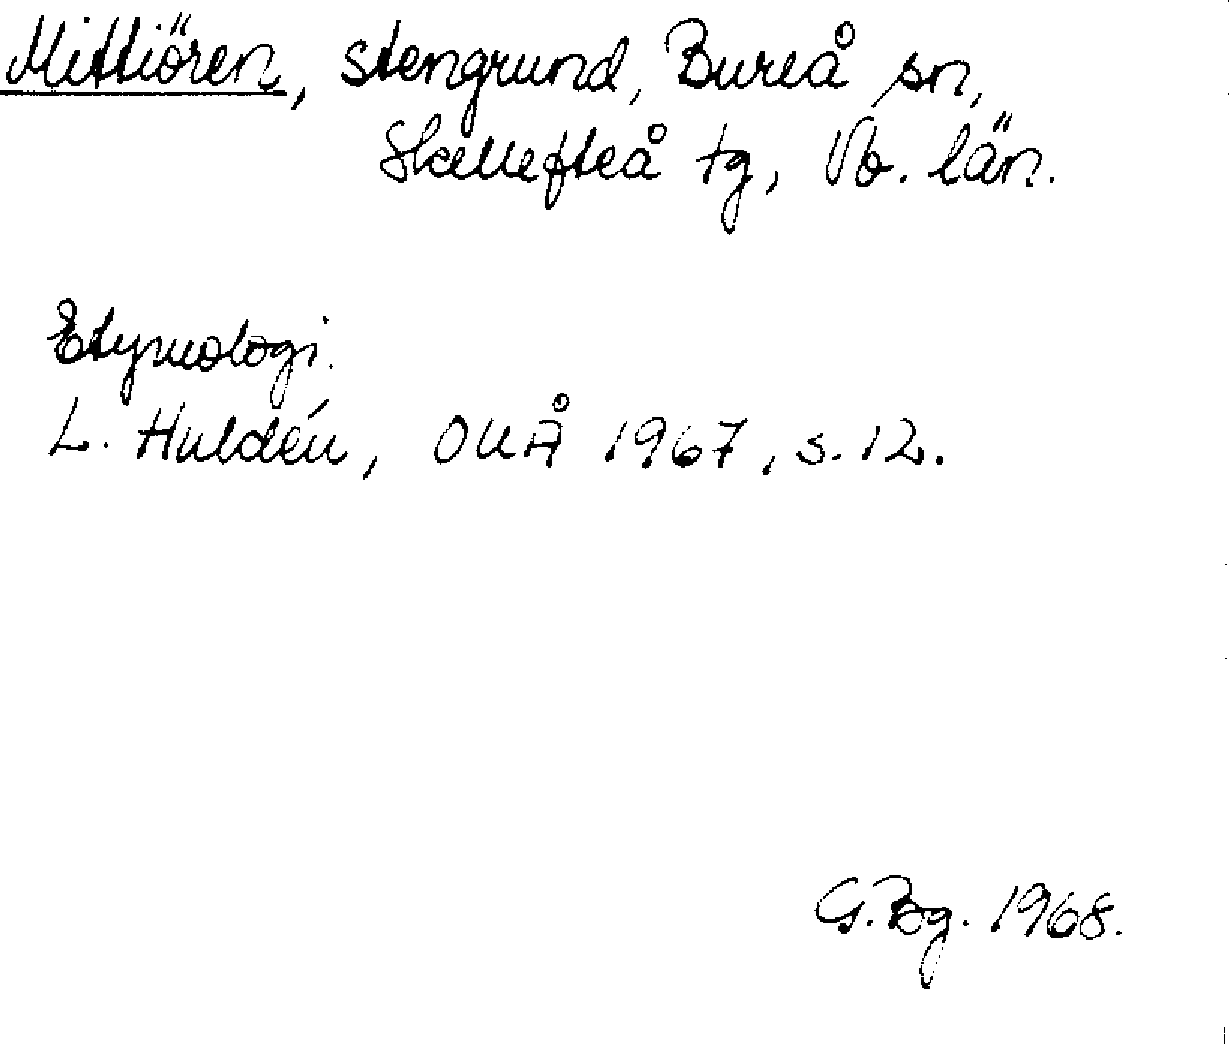 Mittiören, stengrund, Bureå sn,
Skellefteå tg, Vb. län.
Etymologi.
L. Huldén, OUÅ 1967, s. 12.
G. Bg. 1968.